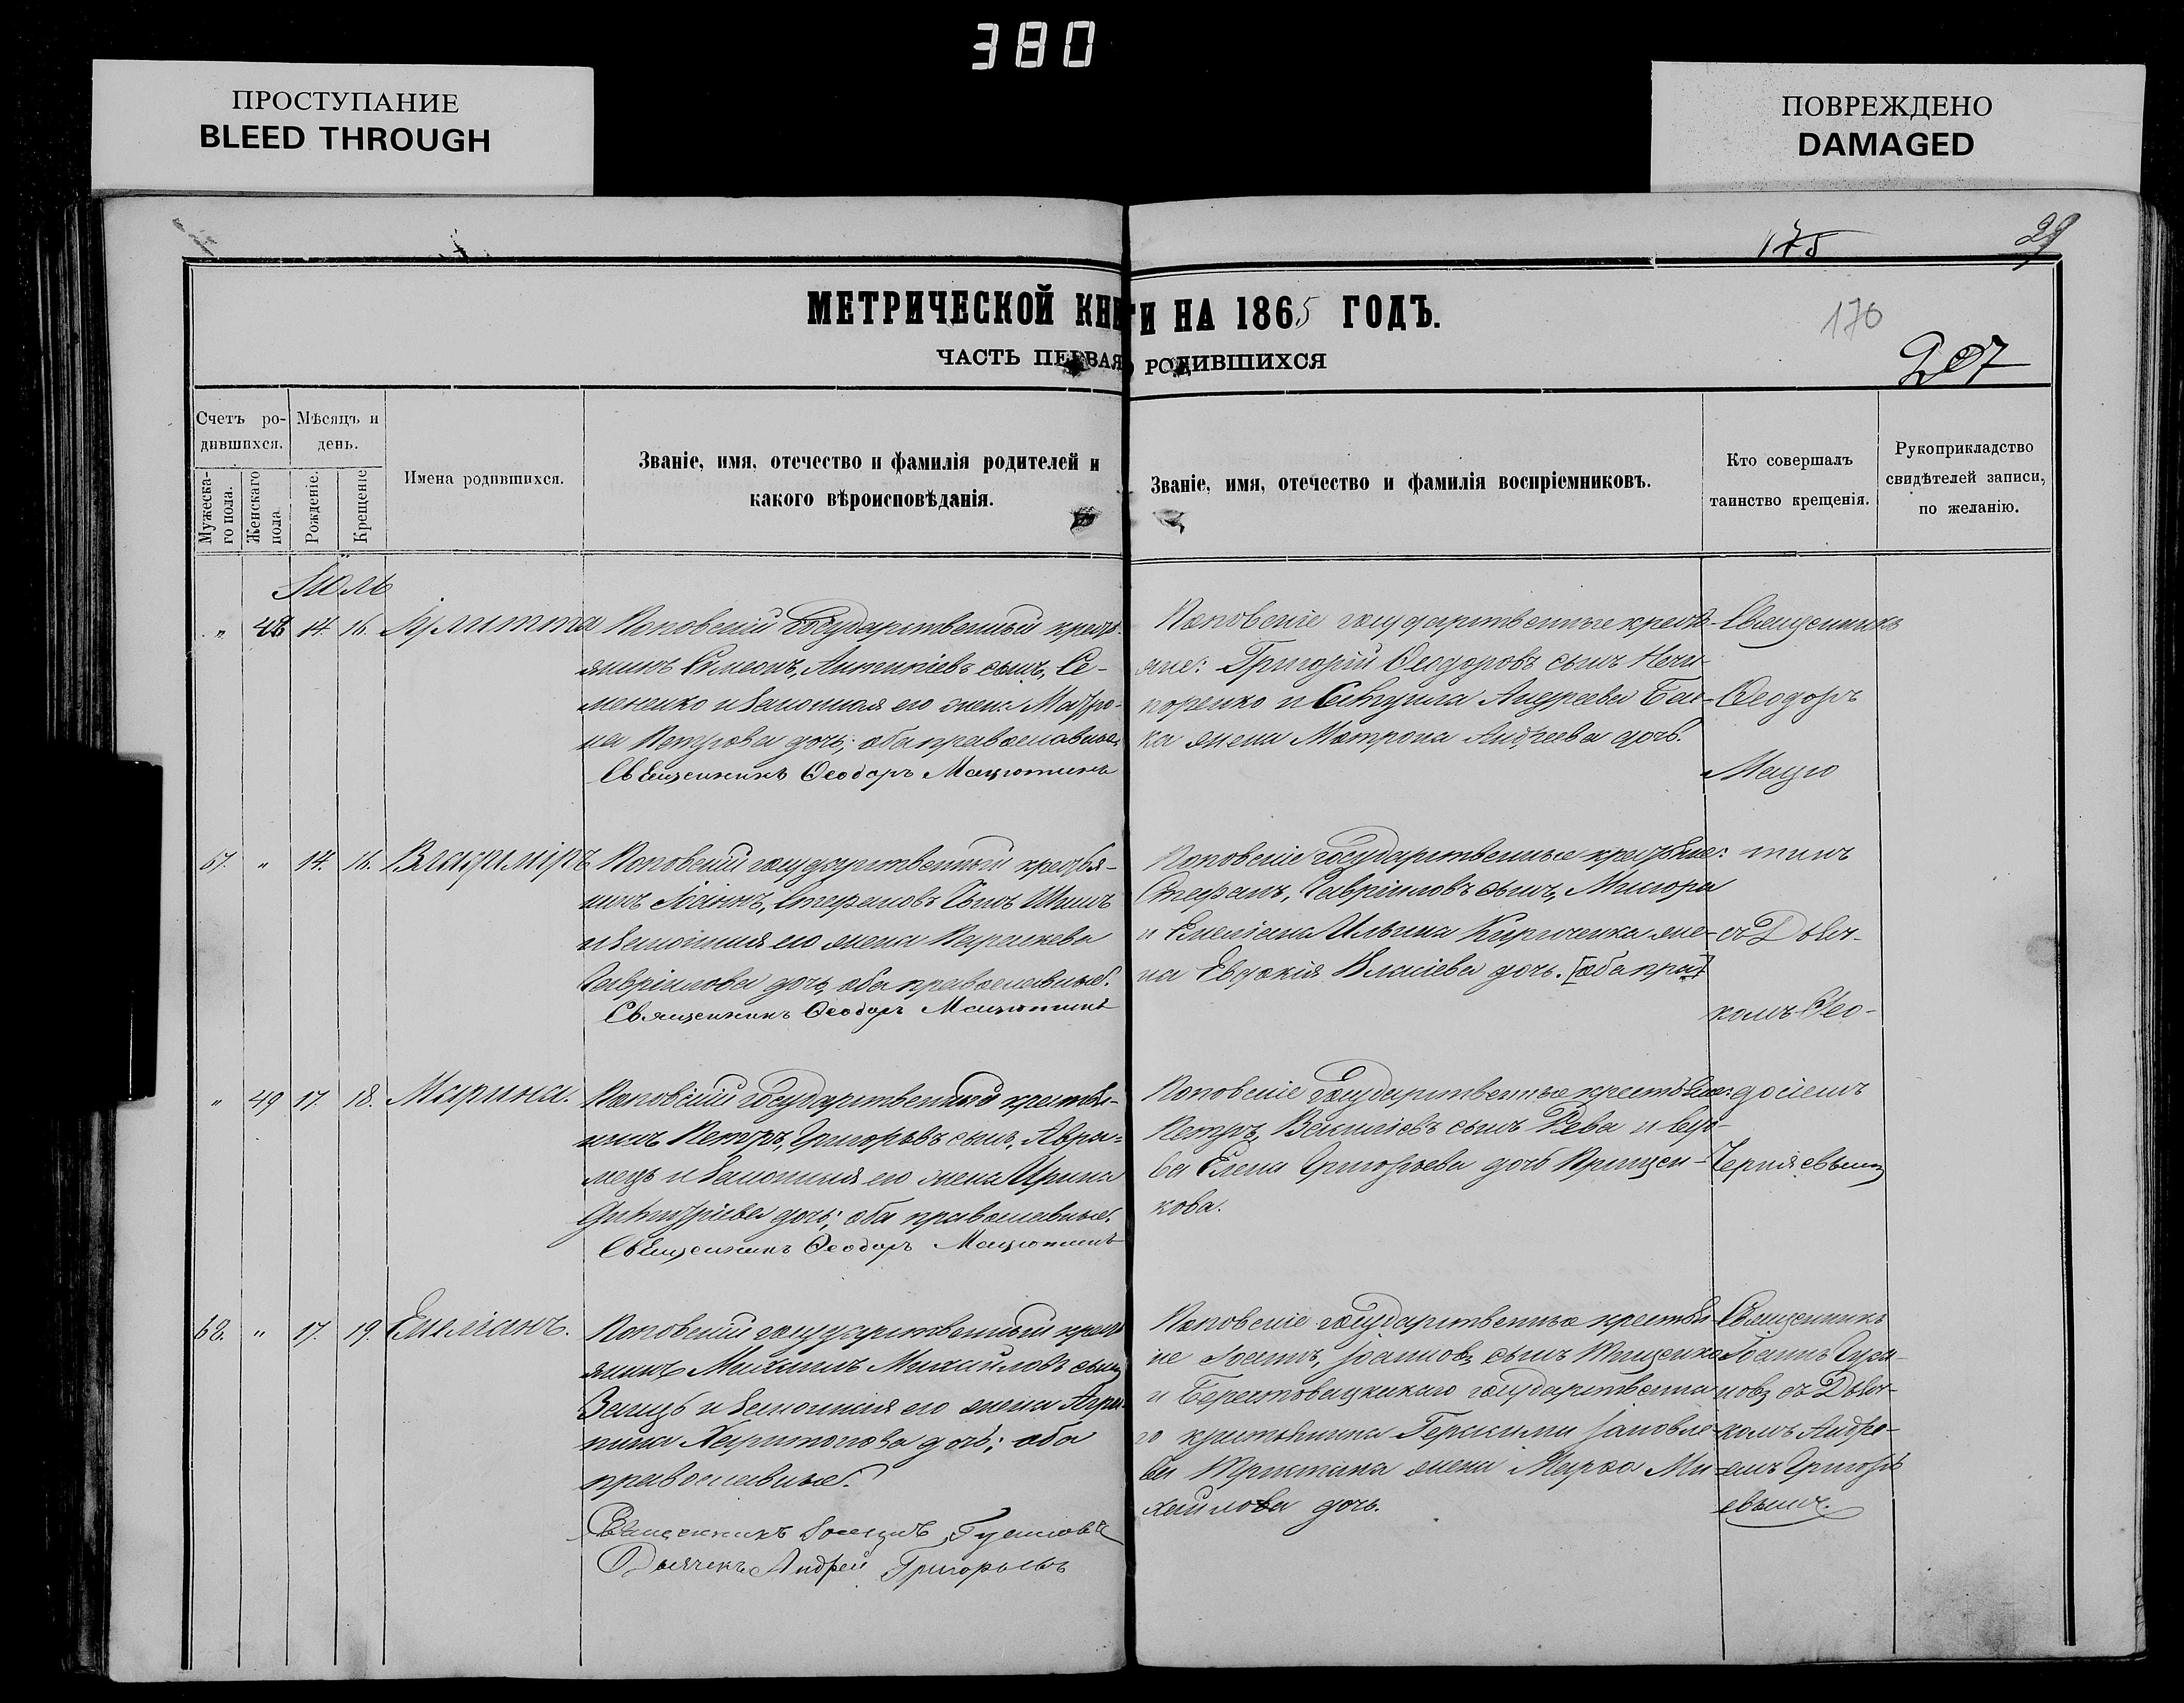 380
ПРОСТУПАНИЕ
BLEED THROUGH
ПОВРЕЖДЕНО
DAMAGED
175
29
МЕТРИЧЕСКОЙ КНИГИ НА 1865 ГОДЪ.
170
ЧАСТЬ ПЕРВАЯ, РОДИВШИХСЯ
207
Счетъ ро-
дившихся.
Мѣсяцъ и
день.
Мужеска-
го пола.
Женскаго
пола
Рожденіе.
Крещеніе
Имена родившихся.
Званіе, имя, отечество и фамилія родителей и
какого вѣроисповѣданія.
Званіе, имя, отечество и фамилія воспріемниковъ.
Кто совершалъ
таинство крещенія.
Рукоприкладство
свидѣтелей записи,
по желанію.
Іюль
" 48 14 16. Іулитта
Поповскій Государственный кресть-
янинъ Симеонъ, Антипіевъ сынъ, Се-
мененко и законная его жена Матро-
на Петрова дочь; оба православные.
Священникъ Ѳеодоръ Мацютинъ
Поповскіе государственные кресть-
яне: Григорій Ѳеодоровъ сынъ Нечи-
поренко и Андреева
жена Матрона Андреева дочь.
Священникъ
Ѳеодоръ
Мацю
67. " 14. 16. Владиміръ
Поповскій государственный крестья-
нинъ Іоаннъ, Стефановъ Сынъ
и законная его жена Параскева
Гавріилова дочь, оба православные.
Священникъ Ѳеодоръ Мацютинъ
Поповскіе государственные крестьяне:
Стефанъ, Гавріиловъ сынъ,
и Емеліана Ильина Кириченка же-
на Евдокія Власіева дочь. [оба пра]
тинъ
съ Дьяч-
комъ Ѳео-
" 49 17. 18. Марина.
Поповскій Государственный крестья-
нинъ Петръ, Григорьевъ сынъ, Авра-
мецъ и законная его жена Ирина
Димитріева дочь; оба православные.
Священникъ Ѳеодоръ Мацютинъ
Поповскіе Государственные крестьяне:
Петръ, Василіевъ сынъ Рева и вдо-
ва Елена Григорьева дочь Прищеп-
кова.
досіемъ
Чернявскимъ
68. " 17. 19. Емеліанъ.
Поповскій государственный кресть-
янинъ Михаилъ Михайловъ сынъ
Заецъ и законная его жена Агрип-
пина Харитонова дочь; оба
православные.
Священникъ Іоаннъ
Дьячекъ Андрей Григорьевъ
Поповскіе государственные крестья-
не Іоаннъ, Іоанновъ сынъ Тищенко
и государственна-
го крестьянина Герасима Іаковле-
ва жена Марѳа Ми-
хайлова дочь.
Священникъ
Іоаннъ
съ Дьяч-
комъ Андре-
емъ Григорь-
евымъ.